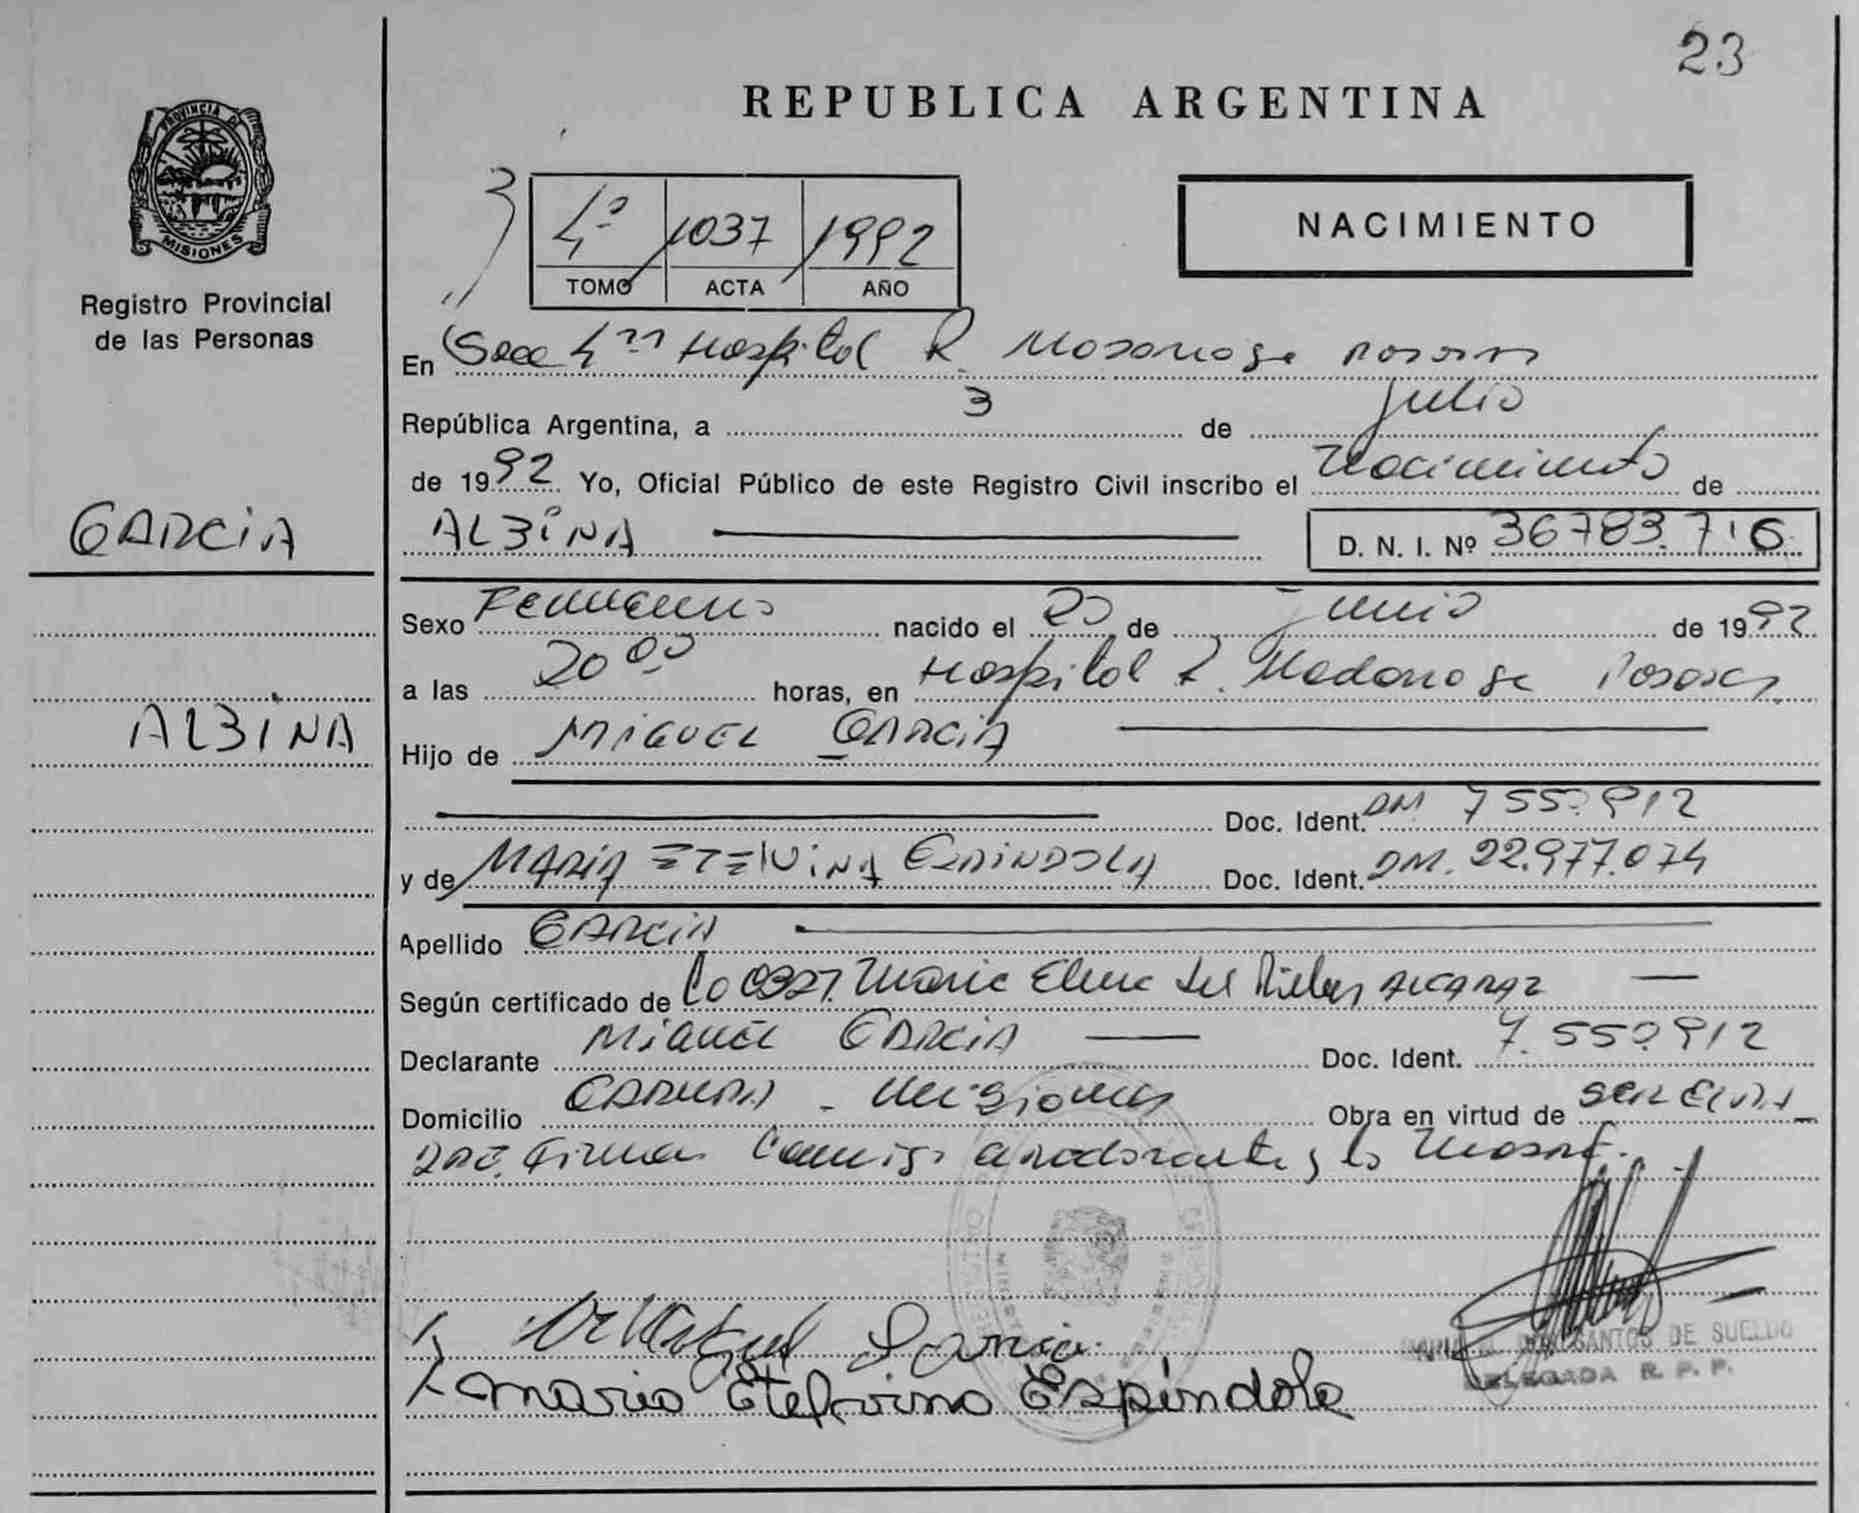 23
REPUBLICA ARGENTINA
PROVINCIA DE
MISIONES
Registro Provincial
de las Personas
4º 1037 1992
TOMO ACTA AÑO
NACIMIENTO
En Secc 4ª Hospital R. Madariaga Posadas
República Argentina, a 3 de julio
de 1992 Yo, Oficial Público de este Registro Civil inscribo el Nacimiento de
GARCIA
ALBINA D. N. I. Nº 36783.716
Sexo Femenino nacido el 20 de junio de 1992
a las 20 00 horas, en Hospital R. Madariaga Posadas
ALBINA
Hijo de MIGUEL GARCIA
Doc. Ident. DM 7.550.912
y de MARIA ETELVINA ESPINDOLA Doc. Ident. DM. 22.977.074
Apellido GARCIA
Según certificado de Maria Elena del ALCARAZ
Declarante MIGUEL GARCIA Doc. Ident. 7.550.912
Domicilio - Misiones Obra en virtud de
Firman Conmigo y la
Garcia
Maria Etelvina Espíndola
SANTOS DE SUELDO
DELEGADA R. P. P.